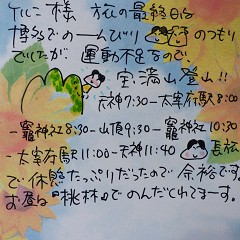 ケルこ 様 旅の最終日は
博多でのーんびり のつもり
でしたが、運動不足なので、
宝満山登山!!
天神7:30-太宰府駅8:00
-竈神社8:30-山頂9:30-竈神社10:30
-太宰府駅11:00-天神11:40
で休憩たっぷりだったので余裕です。
お昼は『桃林』でのんだくれてまーす。